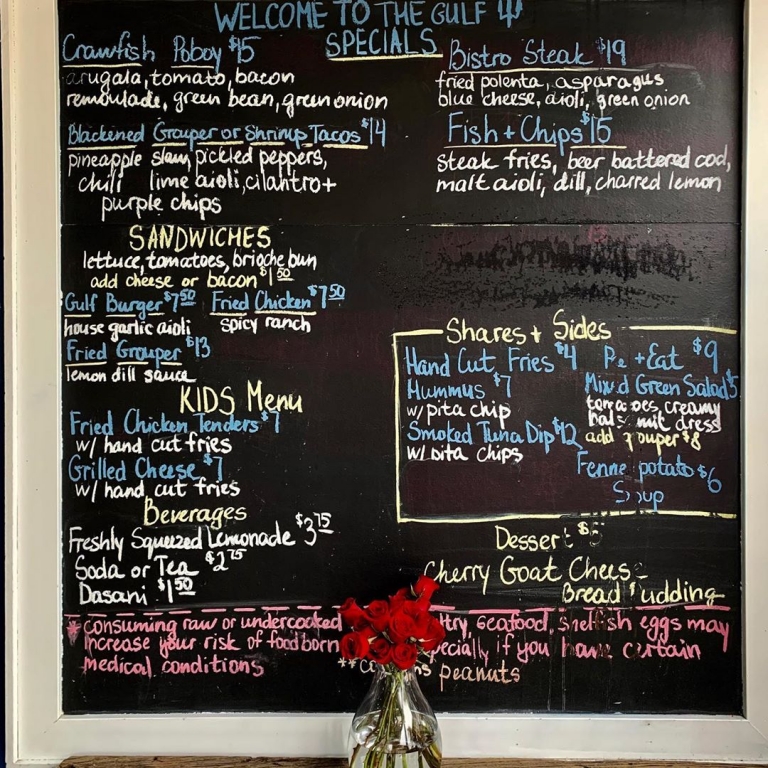 WELCOME TO THE GULF
SPECIALS
Crawfish Poboy $15
arugala, tomato, bacon
remoulade, green bean, green onion
Blackened Grouper or Shrimp Tacos $14
pineapple slaw, pickled peppers,
chili lime aioli, cilantro +
purple chips
Bistro Steak $19
fried polenta, asparagus
blue cheese, aioli, green onion
Fish + Chips $15
steak fries, beer battered cod,
malt aioli, dill, charred lemon
SANDWICHES
lettuce, tomatoes, brioche bun
add cheese or bacon $1.50
Gulf Burger $7.50
house garlic aioli
Fried Chicken $7.50
spicy ranch
Fried Grouper $13
lemon dill sauce
KIDS Menu
Fried Chicken Tenders $7
w/ hand cut fries
Grilled Cheese $7
w/ hand cut fries
Beverages
Freshly Squeezed Lemonade $3.75
Soda or Tea $2.75
Dasani $1.50
Shares + Sides
Hand Cut Fries $4
Hummus $7
w/ pita chip
Smoked Tuna Dip $12
w/ pita chips
+ Eat $9
Mixed Green Salad $5
tomatoes, creamy
dress
add grouper $8
potato $6
Soup
Dessert
Cherry Goat Chees
Bread Pudding
* consuming raw or undercooked seafood, shelfish eggs may
increase your risk of if you have certain
medical conditions
** peanuts